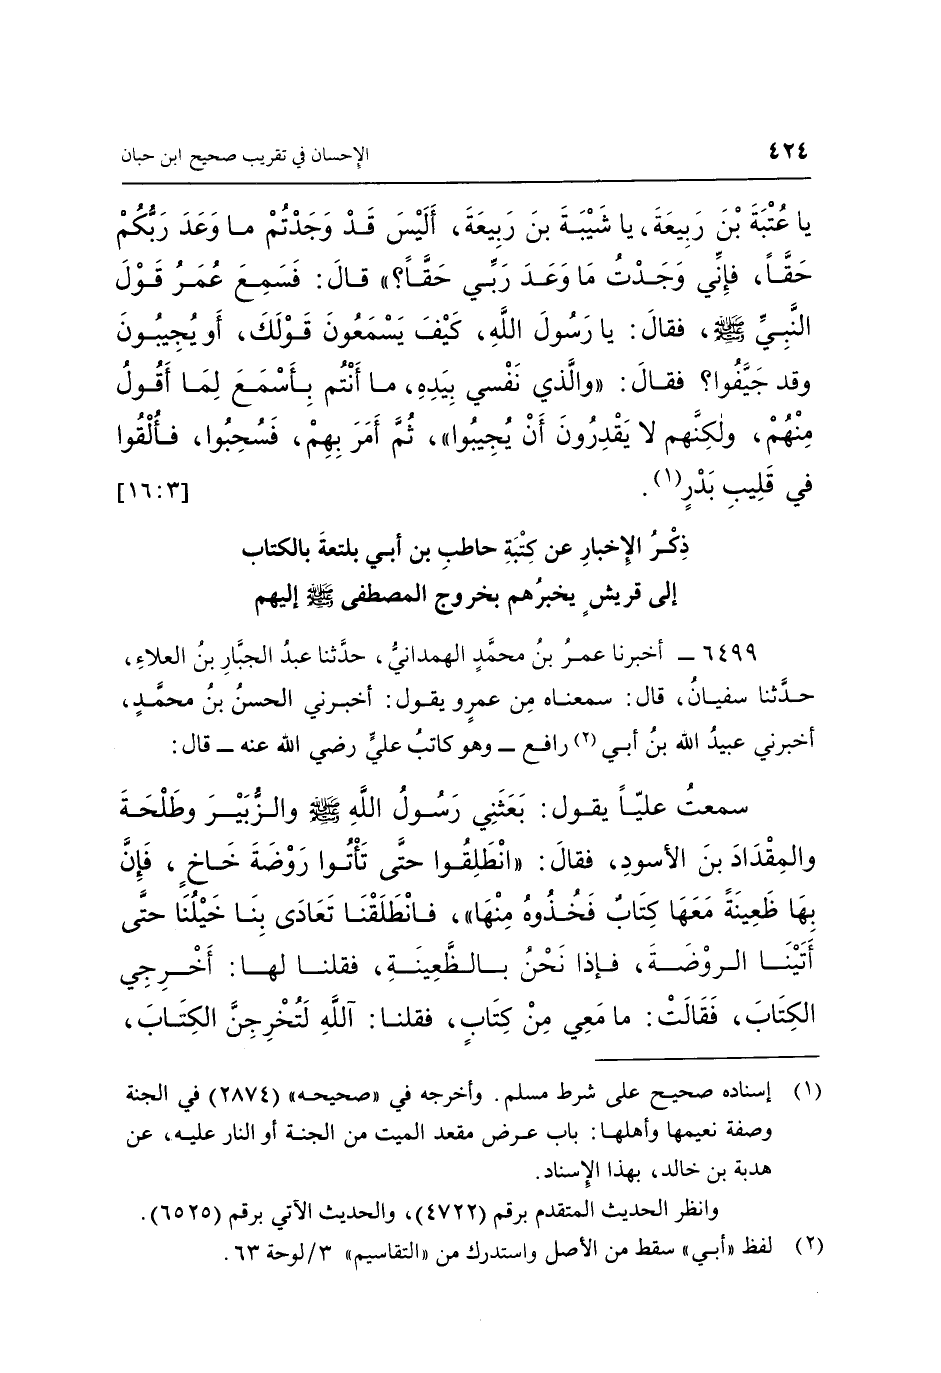 ٤٢٤ الإحسان في تقريب صحيح ابن حبان
يا عُتْبَةَ بْنَ رَبِيعَةَ، يا شَيْبَةَ بنَ رَبِيعَةَ، أَلَيْسَ قَدْ وَجَدْتُمْ ما وَعَدَ رَبُّكُمْ
حَقّاً، فإنِّي وَجَدْتُ مَا وَعَدَ رَبِّي حَقّاً؟» قالَ: فَسَمِعَ عُمَرُ قَوْلَ
النَّبِيِّ ﷺ، فقالَ: يا رَسُولَ اللَّهِ، كَيْفَ يَسْمَعُونَ قَوْلَكَ، أو يُجِيبُونَ
وقد جَيَّفُوا؟ فقالَ: «والَّذي نَفْسي بِيَدِهِ، ما أَنْتُم بِأَسْمَعَ لِمَا أَقُولُ
مِنْهُمْ، ولٰكِنَّهم لا يَقْدِرُونَ أَنْ يُجِيبُوا»، ثُمَّ أَمَرَ بِهِمْ، فَسُحِبُوا، فأُلْقُوا
في قَلِيبِ بَدْرٍ(١). [١٦:٣]
ذِكْرُ الإِخبارِ عن كِتْبَةِ حاطبِ بن أبي بلتعةَ بالكتاب
إلى قريشٍ يخبرُهم بخروج المصطفى ﷺ إليهم
٦٤٩٩ ـ أخبرنا عمرُ بنُ محمَّدٍ الهمدانيُّ، حدَّثنا عبدُ الجبَّارِ بنُ العلاءِ،
حدَّثنا سفيانُ، قال: سمعناه مِن عمرٍو يقول: أخبرني الحسنُ بنُ محمَّدٍ،
أخبرني عبيدُ الله بنُ أبي(٢) رافع ـ وهو كاتبُ عليٍّ رضي الله عنه ـ قال:
سمعتُ عليّاً يقول: بَعَثَنِي رَسُولُ اللَّهِ ﷺ والزُّبَيْرَ وطَلْحَةَ
والمِقْدَادَ بنَ الأسودِ، فقالَ: «انْطَلِقُوا حتَّى تَأْتُوا رَوْضَةَ خَاخٍ، فَإِنَّ
بِهَا ظَعِينَةً مَعَهَا كِتَابٌ فَخُذُوهُ مِنْهَا»، فانْطَلَقْنَا تَعَادَى بِنَا خَيْلُنَا حتَّى
أَتَيْنَا الروْضَةَ، فإذا نَحْنُ بالظَّعِينَةِ، فقلنا لها: أَخْرِجِي
الكِتَابَ، فَقَالَتْ: ما مَعِي مِنْ كِتَابٍ، فقلنا: آللَّهِ لَتُخْرِجِنَّ الكِتَابَ،
(١) إسناده صحيح على شرط مسلم. وأخرجه في «صحيحه» (٢٨٧٤) في الجنة
وصفة نعيمها وأهلها: باب عرض مقعد الميت من الجنة أو النار عليه، عن
هدبة بن خالد، بهذا الإِسناد.
وانظر الحديث المتقدم برقم (٤٧٢٢)، والحديث الآتي برقم (٦٥٢٥).
(٢) لفظ «أبي» سقط من الأصل واستدرك من «التقاسيم» ٣/لوحة ٦٣.